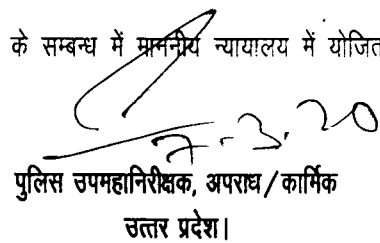 के सम्बन्ध में माननीय न्यायालय में योजित
7-3.20
पुलिस उपमहानिरीक्षक, अपराध/कार्मिक
उत्तर प्रदेश।